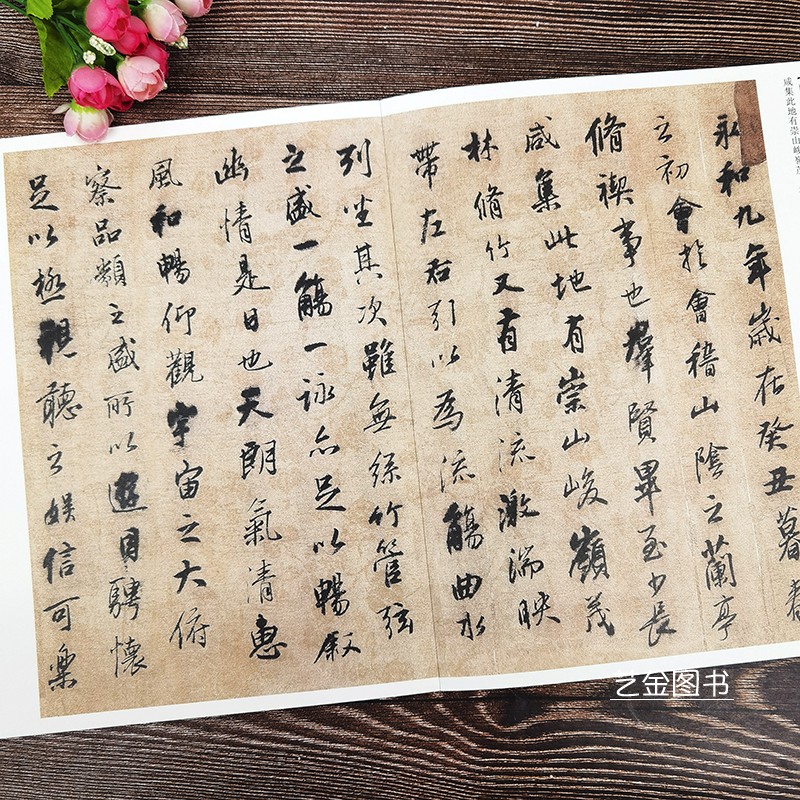 咸集此地有崇山峻岭茂
永和九年歲在癸丑暮春
之初會於會稽山陰之蘭亭
脩禊事也羣賢畢至少長
咸集此地有崇山峻嶺茂
林脩竹又有清流激湍映
帶左右引以為流觴曲水
列坐其次雖無絲竹管弦
之盛一觴一詠亦足以暢叙
幽情是日也天朗氣清惠
風和暢仰觀宇宙之大俯
察品類之盛所以遊目騁懷
足以極視聽之娛信可樂
艺金图书